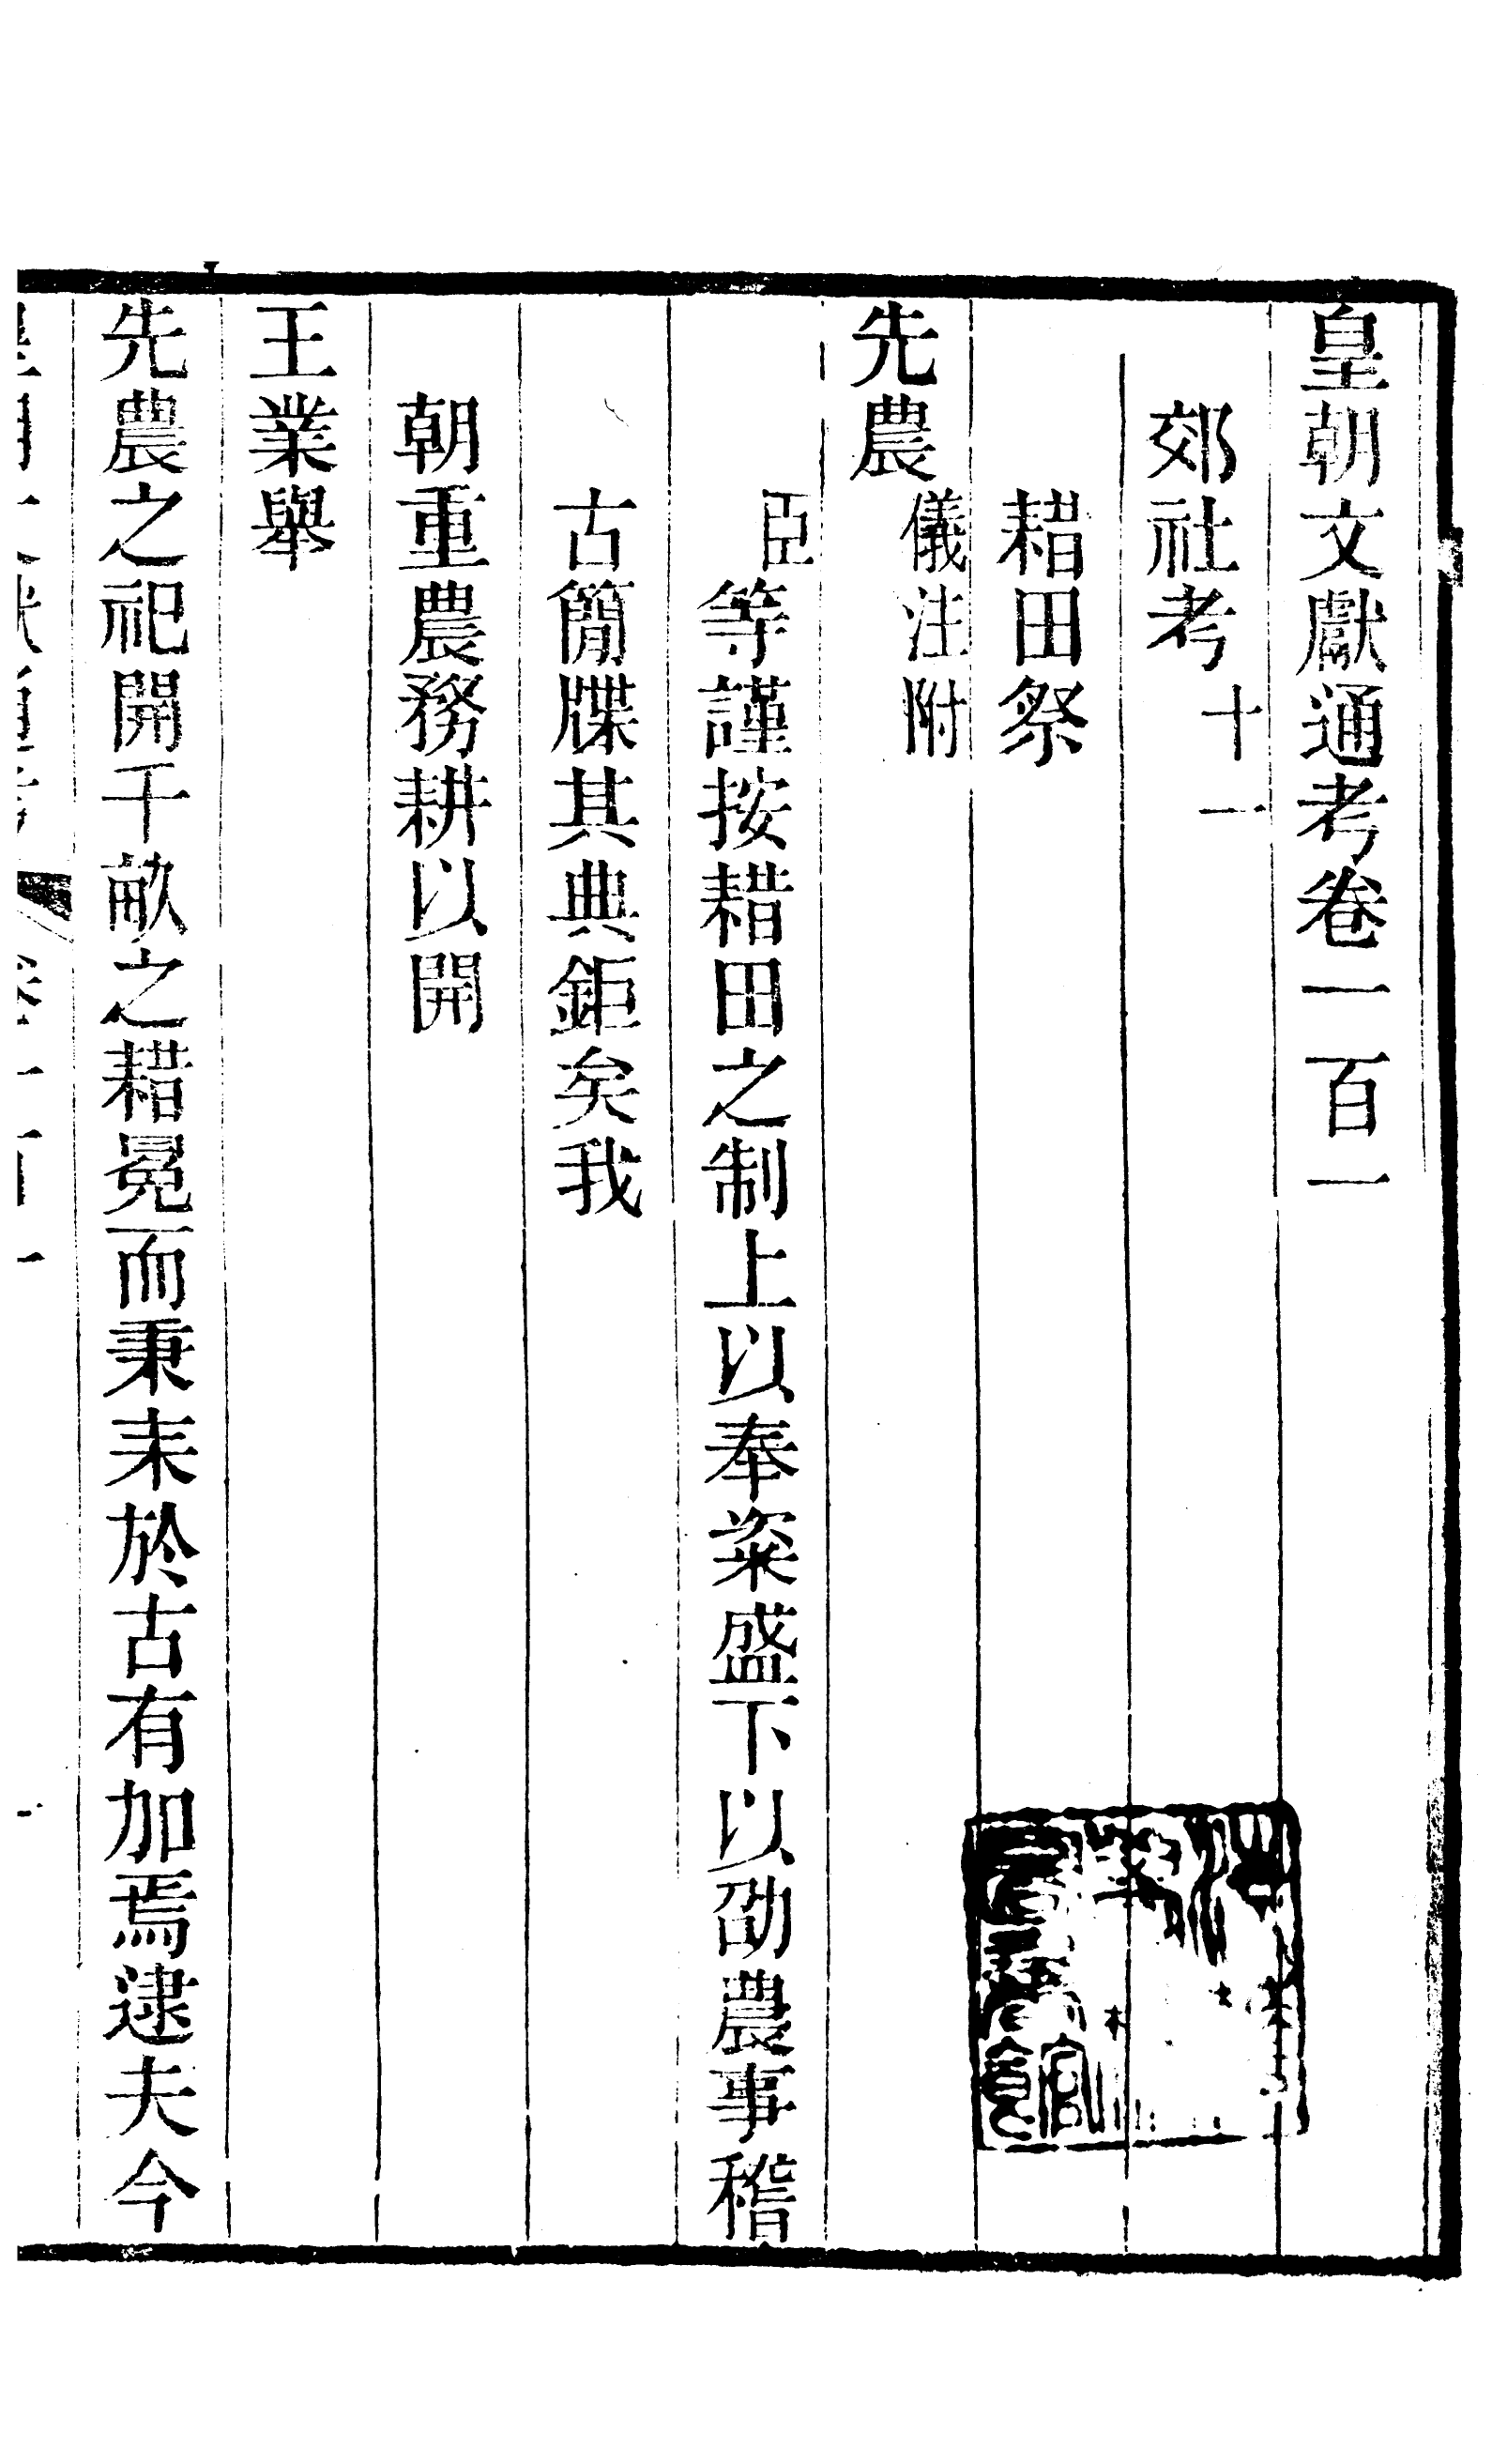 皇朝文獻通考卷一百一
郊社考十一
耤田祭
先農儀注附
臣等謹按耤田之制上以奉粢盛下以劭農事稽
古簡牒其典鉅矣我
朝重農務耕以開
王業舉
先農之祀開千畝之耤冕而秉耒於古有加焉逮夫今